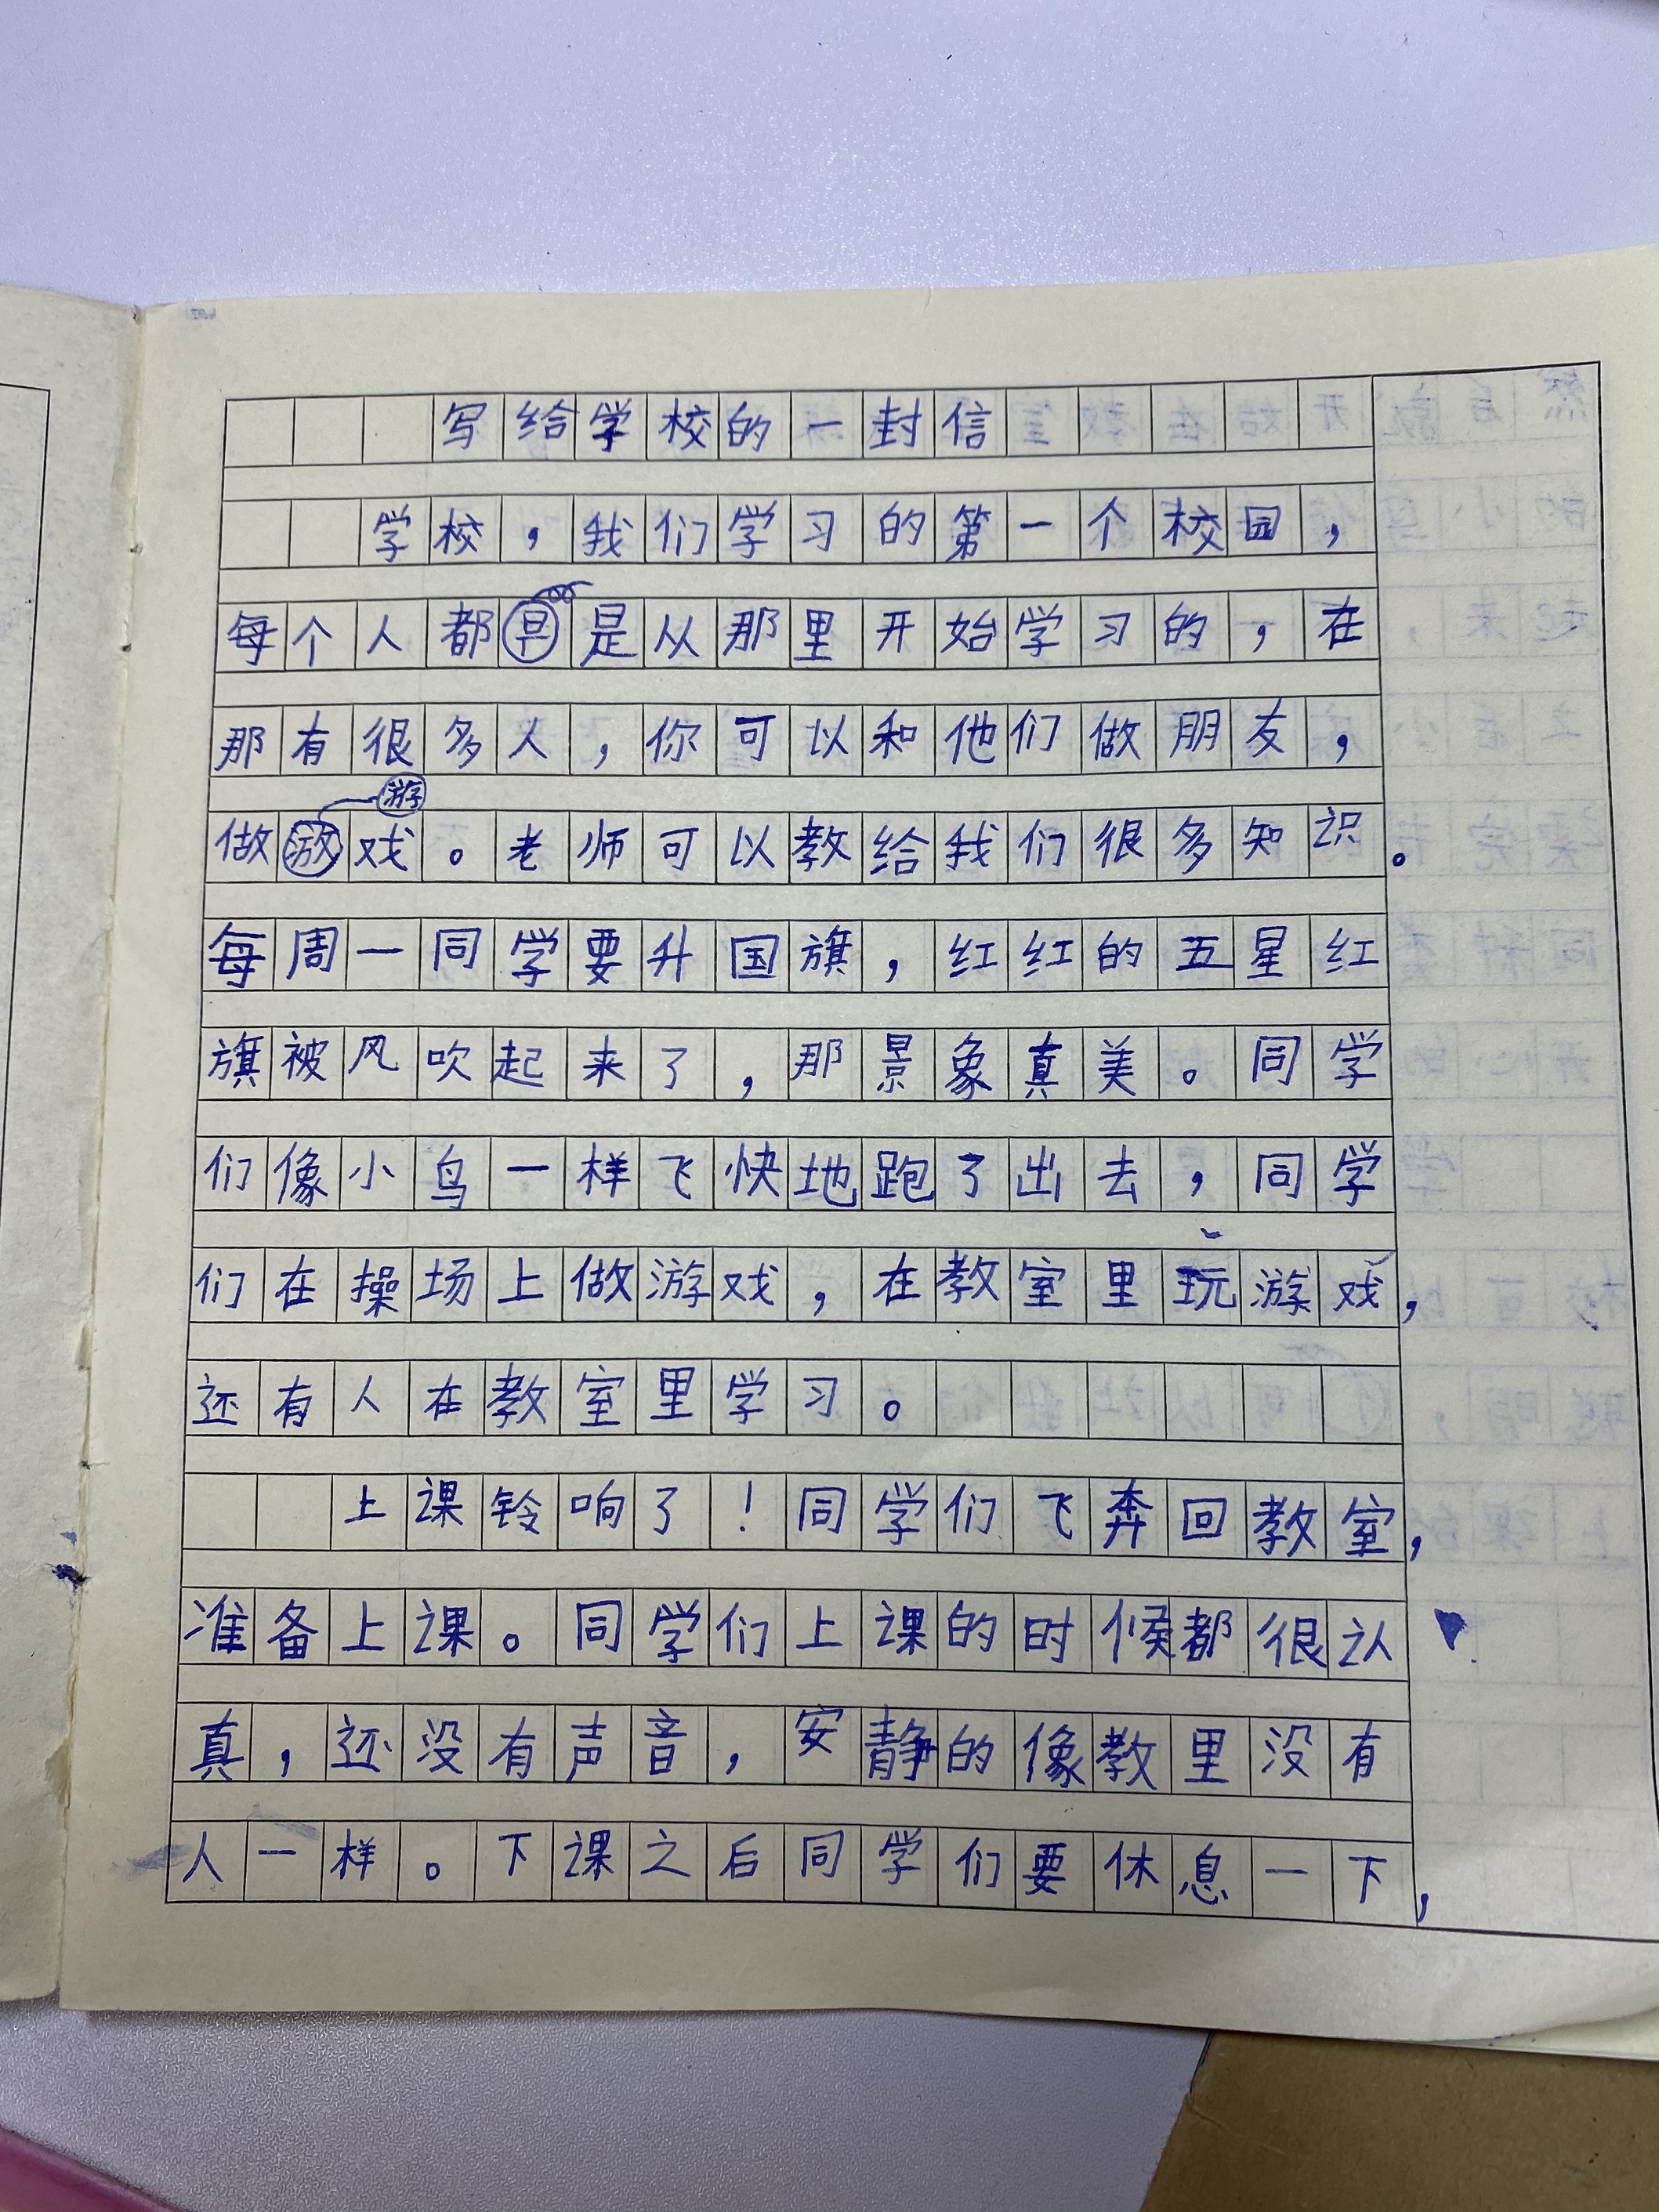 写给学校的一封信
学校，我们学习的第一个校园，
每个人都是从那里开始学习的，在
那有很多人，你可以和他们做朋友，
做游戏。老师可以教给我们很多知识。
每周一同学要升国旗，红红的五星红
旗被风吹起来了，那景象真美。同学
们像小鸟一样飞快地跑了出去，同学
们在操场上做游戏，在教室里玩游戏，
还有人在教室里学习。
上课铃响了！同学们飞奔回教室，
准备上课。同学们上课的时候都很认
真，还没有声音，安静的像教里没有
人一样。下课之后同学们要休息一下，